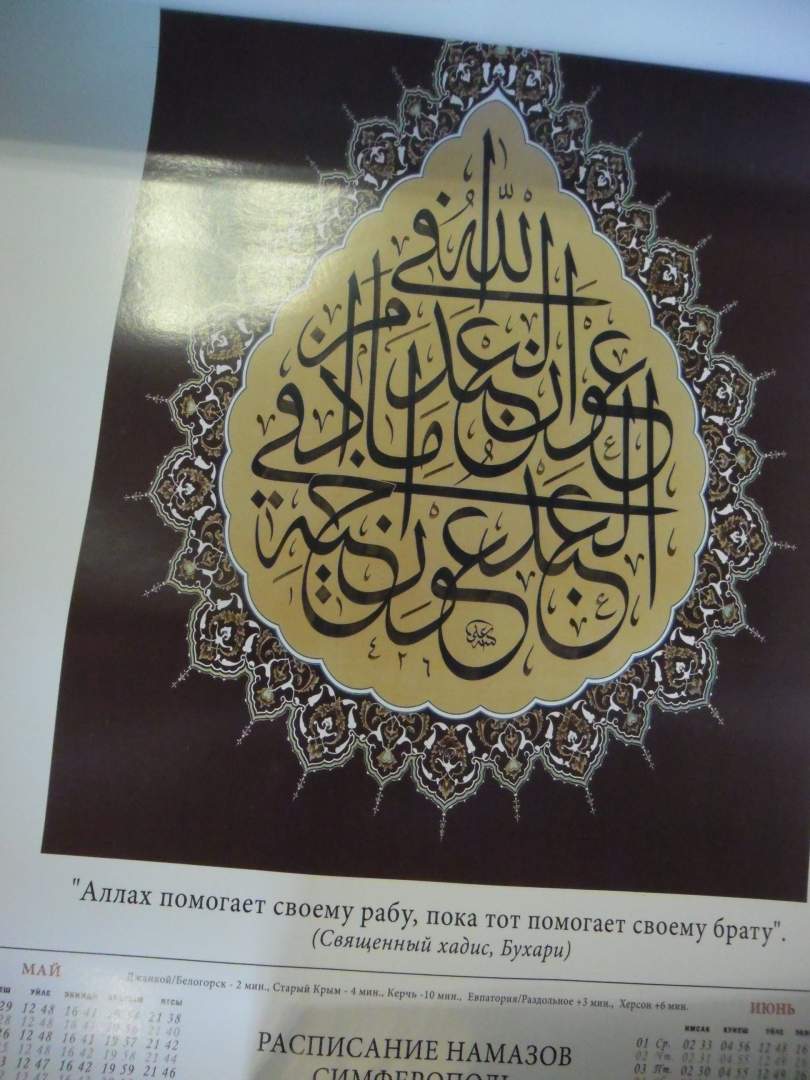 الله في
عون العبد
ما دام
العبد في
عون اخيه
"Аллах помогает своему рабу, пока тот помогает своему брату".
(Священный хадис, Бухари)
МАЙ
Джанкой/Белогорск - 2 мин., Старый Крым - 4 мин., Керчь -10 мин., Евпатория/Раздольное +3 мин., Херсон +6 мин.
ИЮНЬ
УЙЛЕ ЭКИНДИ ЯТСЫ
12 48 16 41 21 38
12 48 16 41 19 56 21 40
12 48 16 41 19 57 21 42
12 48 16 42 19 58 21 44
12 47 16 42 19 59 21 46
РАСПИСАНИЕ НАМАЗОВ
СИМФЕРОПОЛЬ
ИМСАК КУНЕШ УЙЛЕ
01 Ср. 02 33 04 56 12 48
02 Чт. 02 31 04 55
03 Пт. 02 30 04 55 12 49